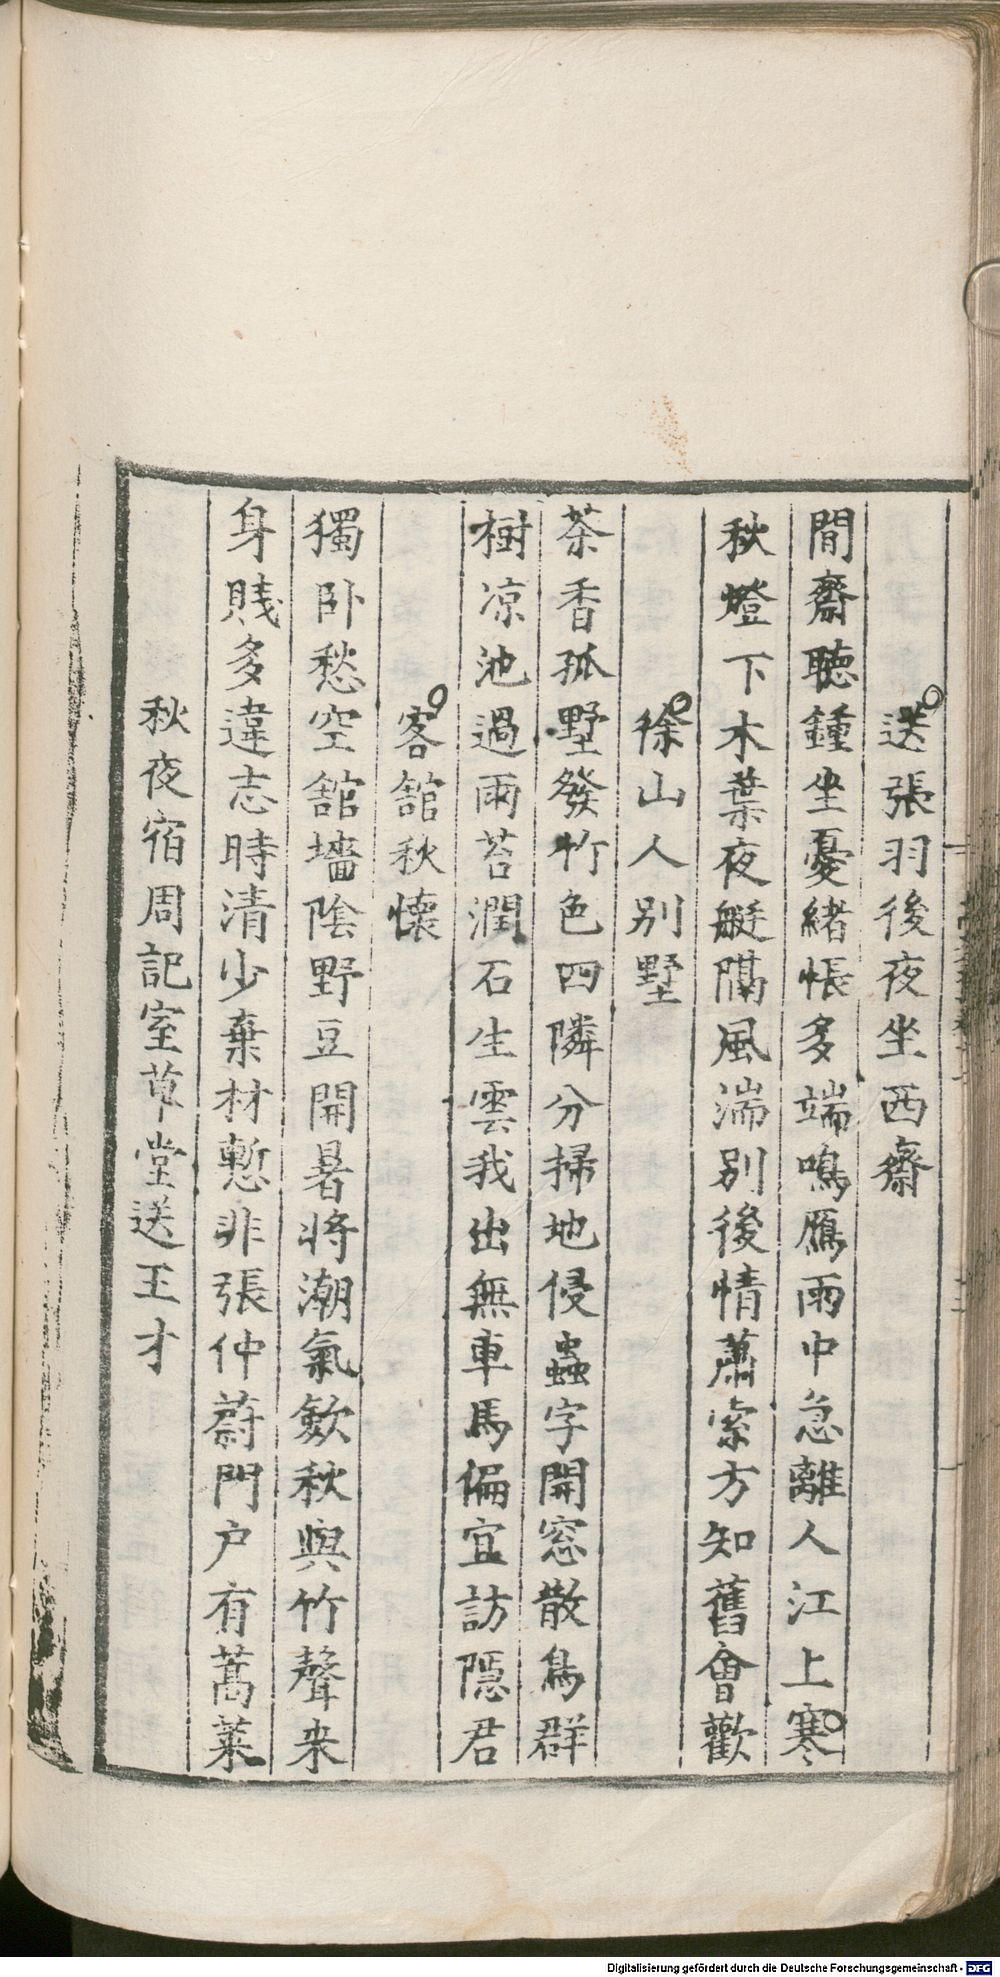 送張羽後夜坐西齋
閒齋聽鍾坐憂緒悵多端鳴鴈雨中急離人江上寒
秋燈下木葉夜艇隔風湍別後情蕭索方知舊會歡
徐山人別墅
茶香孤墅發竹色四隣分掃地侵蟲字開窓散鳥群
樹凉池過雨苔潤石生雲我出無車馬偏宜訪隠君
客舘秋懷
獨卧愁空舘墻陰野豆開暑將潮氣歛秋與竹聲来
身賎多違志時清少棄材慙非張仲蔚門户有蒿萊
秋夜宿周記室草堂送王才
Digitalisierung gefördert durch die Deutsche Forschungsgemeinschaft - DFG